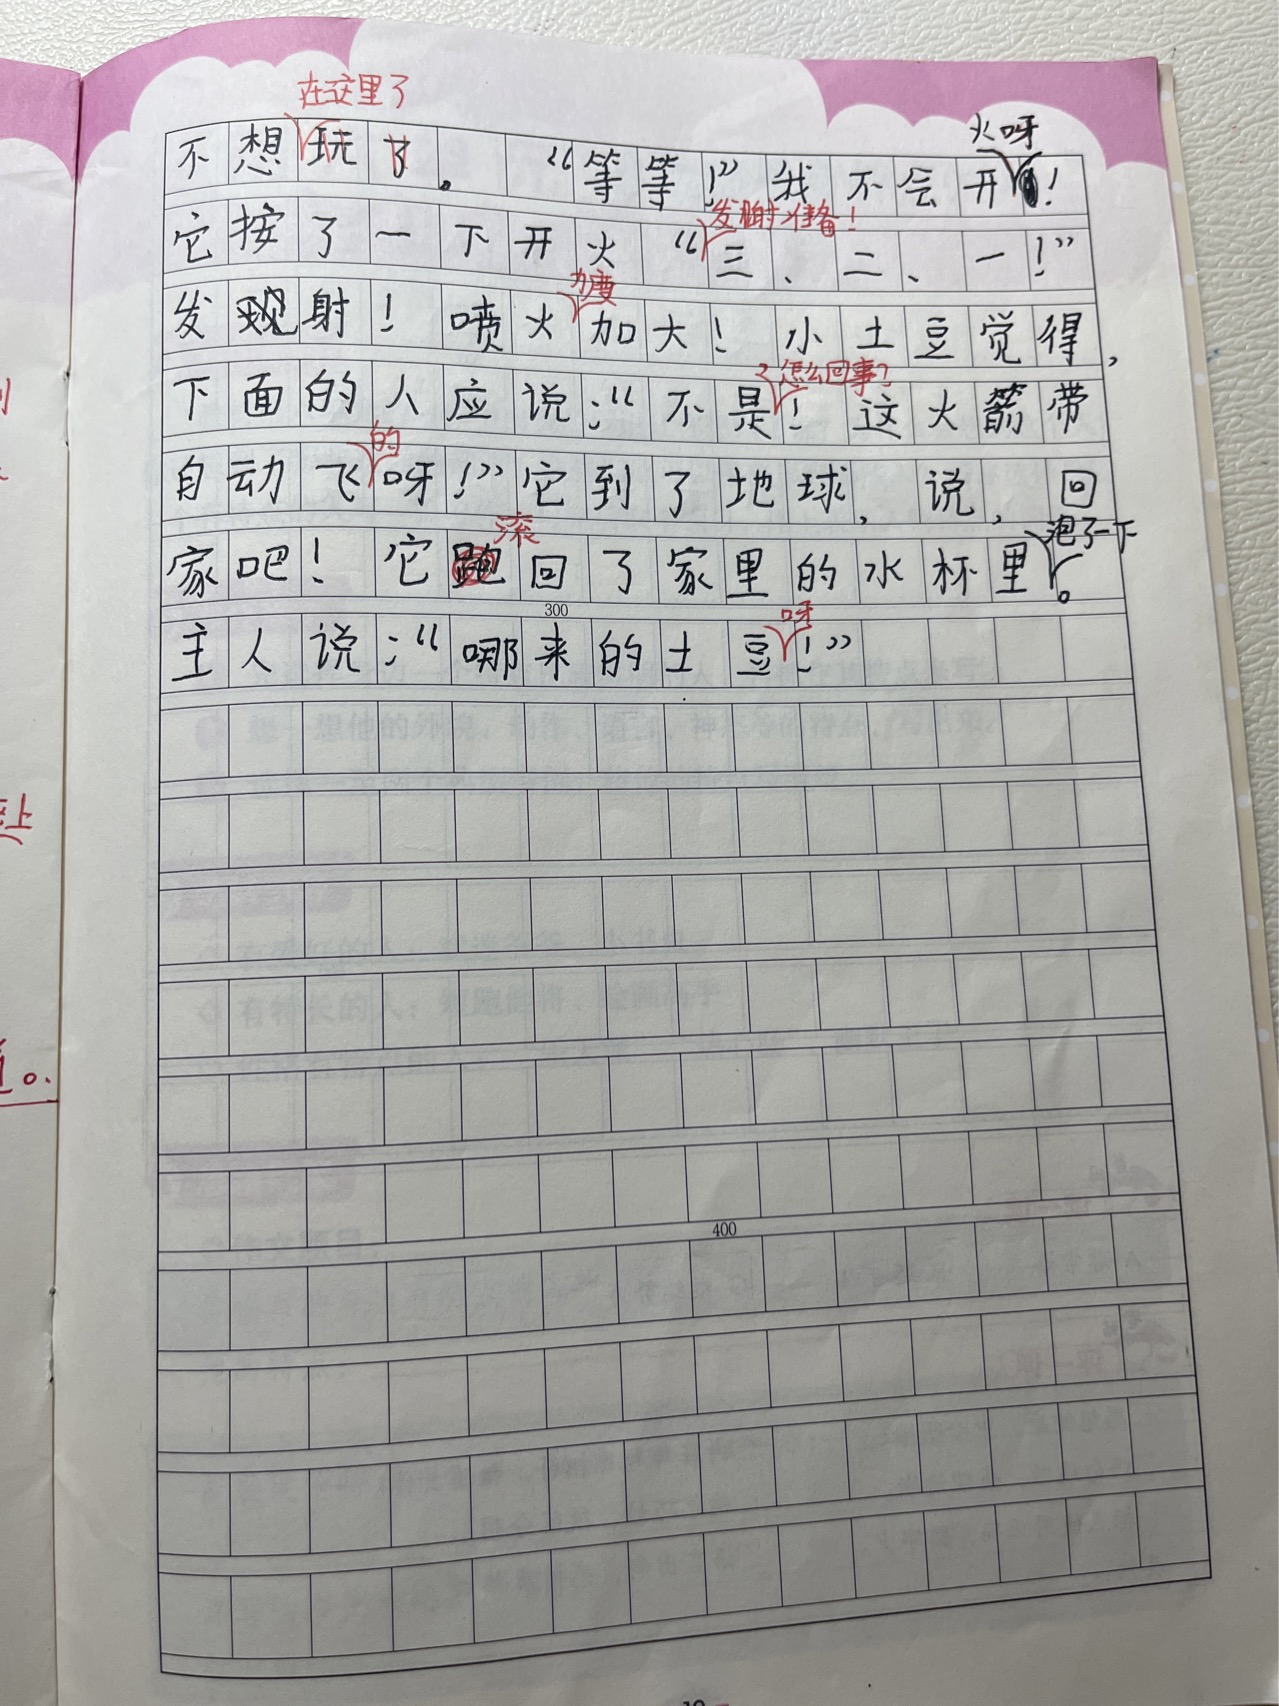 在这里了
不想玩了。“等等!”我不会开!
火呀
它按了一下开火“三、二、一!”
发射准备!
发现射!喷火加大!小土豆觉得,
力度
下面的人应说:“不是!这火箭带
怎么回事?
自动飞呀!”它到了地球,说,回
的
家吧!它跑回了家里的水杯里。
滚
泡了一下
300
主人说:“哪来的土豆!”
呀
400